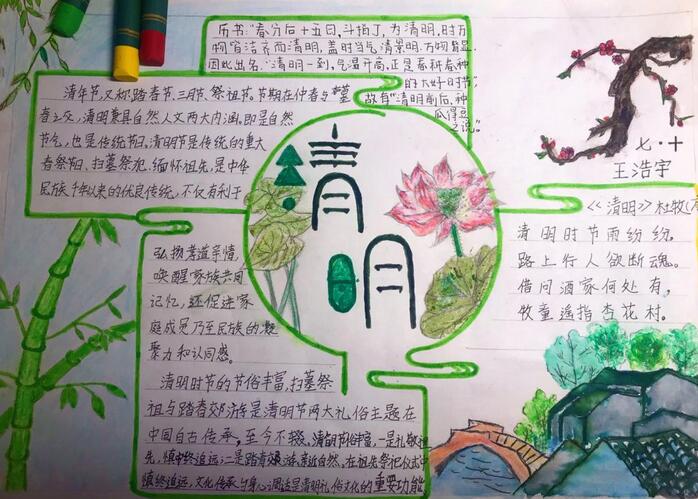 历书:"春分后十五日,斗指丁,为清明,时万
物皆洁齐而清明,盖时当气清景明,万物皆显,
因此出名."清明一到,气温升高,正是春耕春种
的大好时节,
故有"清明前后,种
瓜得豆
之说"。
清年节,又称踏春节、三月节、祭祖节。节期在仲春与暮
春之交,清明兼具自然人文两大内涵。即是自然
节气,也是传统节日,清明节是传统的重大
春祭节日,扫墓祭祀、缅怀祖先,是中华
民族千年以来的优良传统,不仅有利于
弘扬孝道亲情,
唤醒家族共同
记忆,还促进家
庭成员乃至民族的凝
聚力和认同感。
清明时节的节俗丰富,扫墓祭
祖与踏春郊游是清明节两大礼俗主题在
中国自古传承,至今不辍。清明节俗丰富,一是礼敬祖
先,慎终追远;二是踏青郊游、亲近自然。在祖先祭祀仪式中
慎终追远,文化传承与身心调适是清明礼俗文化的重要功能
清明
七·十
王浩宇
《清明》杜牧(
清明时节雨纷纷,
路上行人欲断魂。
借问酒家何处有,
牧童遥指杏花村。